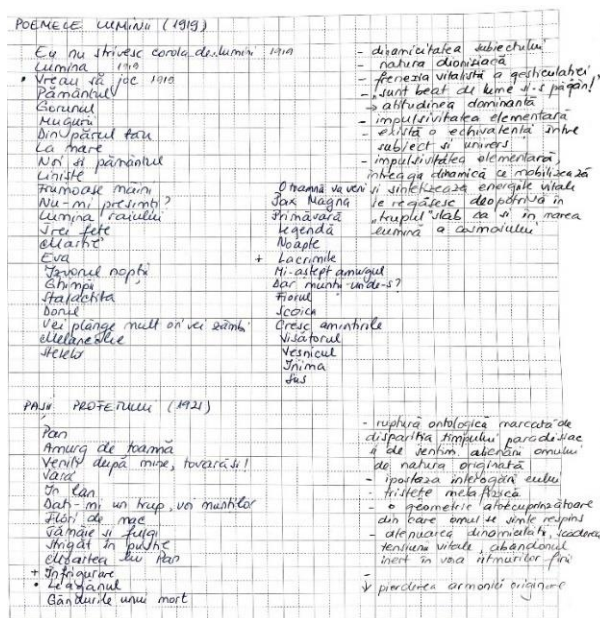 POEMELE LUMINII (1919)
Eu nu strivesc corola de lumini 1919
Lumina 1919
• Vreau să joc 1919
Pământul
Gorunul
Mugurii
Din părul tău
La mare
Noi și pământul
Liniște
Frumoase maini
Nu-mi presimți?
Lumina raiului
Trei fete
Martie
Eva
Izvorul nopții
Ghimpii
Stalactita
Dorul
Vei plânge mult ori vei zâmbi
Melancolie
Stelelor
O toamnă va veni
Pax Magna
Primăvară
Legendă
Noapte
+ Lacrimile
Mi-aștept amurgul
Dar munții-unde-s?
Fiorul
Scoica
Cresc amintirile
Visătorul
Veșnicul
Inima
Sus
- dinamicitatea subiectului
- natura dionisiacă
- frenezia vitalistă a gesticulației
- "sunt beat de lume și-s păgân!"
→ atitudinea dominantă
- impulsivitatea elementară
- există o echivalență între
subiect și univers
- impulsivitatea elementară,
întreaga dinamică ce mobilizează
și sintetizează energiile vitale
se regăsesc deopotrivă în
"trupul" slab ca și în marea
lumină a cosmosului
PAȘII PROFETULUI (1921)
Pan
Amurg de toamnă
Veniți după mine, tovarăși!
Vara
In lan
Dați-mi un trup, voi munților
Flori de mac
Tămâie și fulgi
Strigăt în pustie
Moartea lui Pan
+ Înfrigurare
• Leagănul
Gândurile unui mort
- ruptură ontologică marcată de
dispariția timpului paradisiac
și de sentim. alienării omului
de natura originată
- ipostaza interogării eului
- tristețe metafizică
- o geometrie atotcuprinzătoare
din care omul se simte respins
- atenuarea dinamicității, scaderea
tensiunii vitale, abandonul
inert în voia ritmurilor firii
-
↓ pierderea armoniei originare